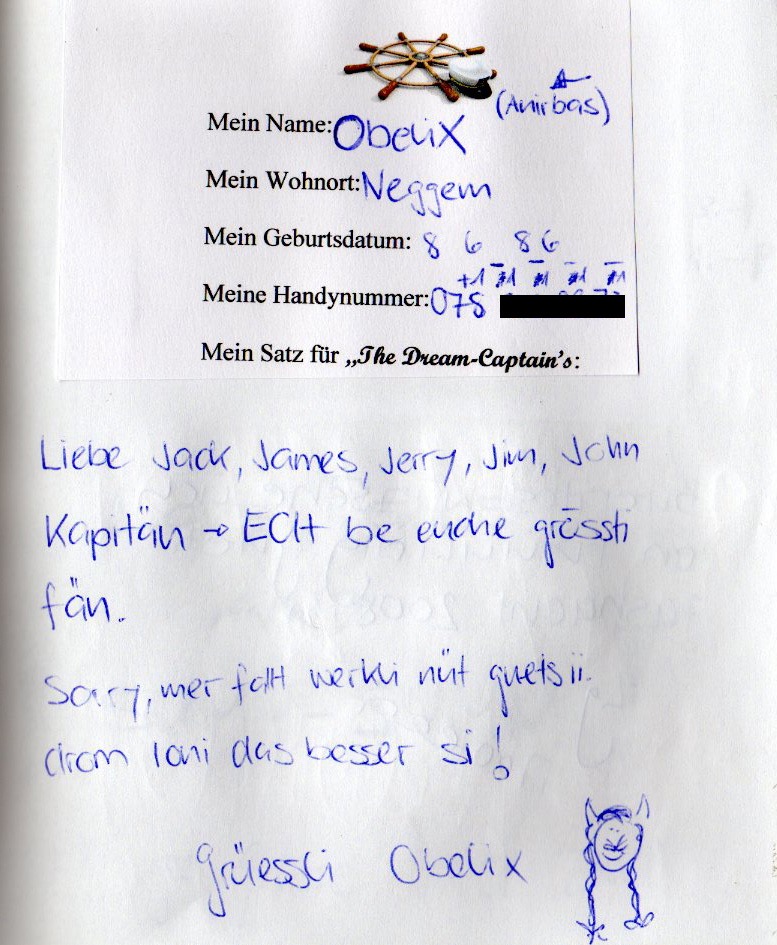 (Anirbas)
Mein Name: Obelix
Mein Wohnort: Neggem
Mein Geburtsdatum: 8 6 86
+1 -1 -1 -1 -1
Meine Handynummer: 078
Mein Satz für „The Dream-Captain's:
Liebe Jack, James, Jerry, Jim, John
Kapitän → ECH be euche grössti
fän.
Sorry, mer fallt werkli nüt guets ii.
drom loni das besser si!
Grüessli Obelix